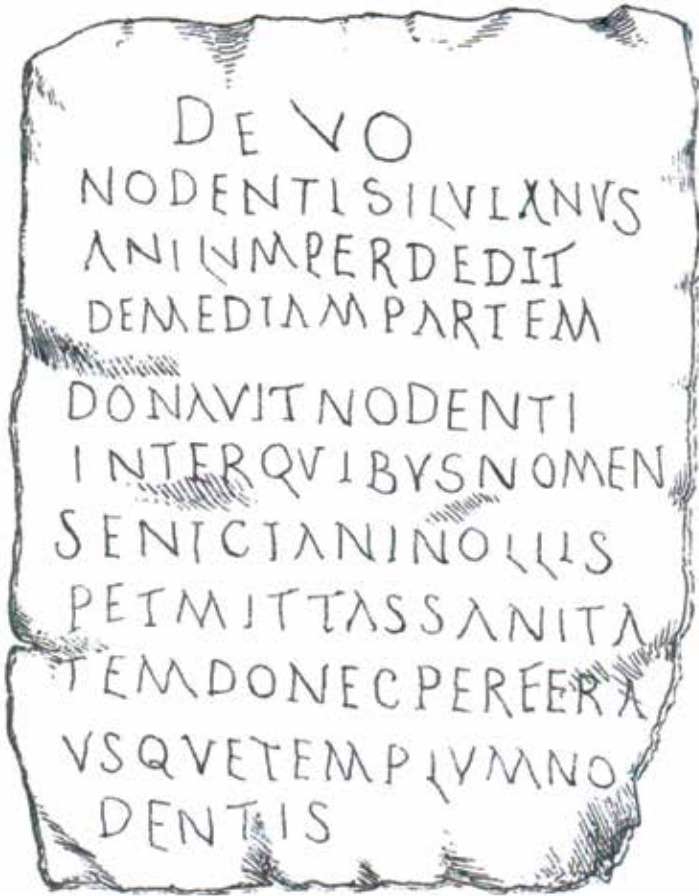 DEVO
NODENTISILVLANVS
ANILVMPERDEDIT
DEMEDIAMPARTEM
DONAVITNODENTI
INTERQVIBVSNOMEN
SENICIANINOLLIS
PETMITTASSANITA
TEMDONECPERFERA
VSQVETEMPLVMNO
DENTIS